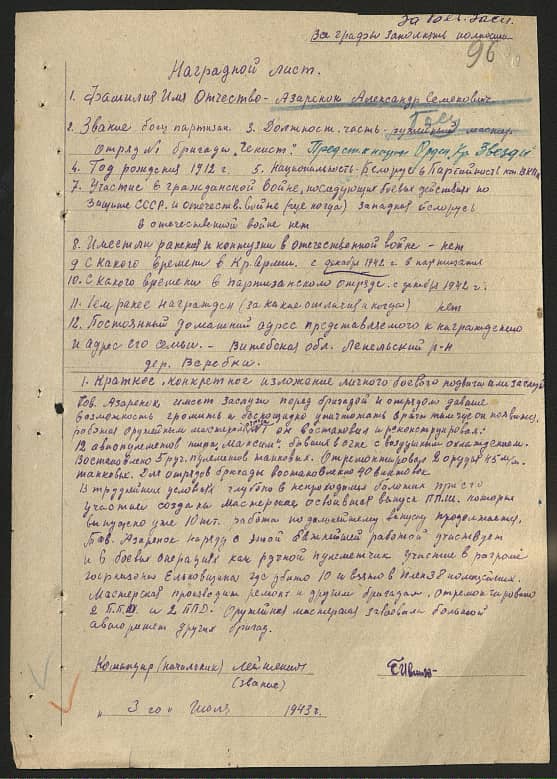 За боев. засл.
Все графы заполнять полностью
96
Наградной лист.
1. Фамилия Имя Отчество - Азаренок Александр Семенович
2. Звание боец партизан 3. Должност. часть - оружейный мастер
Отряд №1 бригады "Чекист." Предст. к награде Орден Кр. Звезды
4. Год рождения 1912 г. 5. Национальность - Белорус 6. Партийность
7. Участие в гражданской войне, последующих боевых действиях по
защите СССР и отечеств. войне (где когда) западная Белорусь
в отечественной войне нет
8. Имеет ли ранения и контузии в отечественной войне - нет
9 С какого времени в Кр. Армии. с декабря 1942 г. в партизанах
10. С какого времени в партизанском отряде. с декабря 1942 г.
11. Чем ранее награжден (за какие отличия и когда) нет
12. Постоянный домашний адрес представляемого к награждению
и адрес его семьи. - Витебская обл. Лепельский р-н
дер. Веребки.
1. Краткое, конкретное изложение личного боевого подвига или заслуг
тов. Азаренок имеет заслуги перед бригадой и отрядом давшие
возможность громить и беспощадно уничтожать врага
работая оружейным мастером он востановил и реконструировал:
12 авиопулеметов типа "Максим" бывших в огне с воздушным охлаждением.
Востановлено 5 руч. пулеметов танковых. Отремонтировал 2 орудия 45 м/м.
танковых. Для отрядов бригады востановлено 40 винтовок
В труднейших условиях глубоко в непроходимом болоте при его
участии создана мастерская освоившая выпуск ППШ. которых
выпущено уже 10 шт. работа по дальнейшему выпуску продолжается,
Тов. Азаренок наряду с этой важнейшей работой участвует
и в боевых операциях как ручной пулеметчик участие в разгроме
гарнизона Ельковщина где убито 10 и взято в плен 38
Мастерская производит ремонт и другим бригадам. отремонтировано
2 ППШ и 2 ППД. Оружейная мастерская завоевала большой
авторитет других бригад.
Командир (начальник) Лейтенант
(звание)
" 3 го " Июля 1943 г.